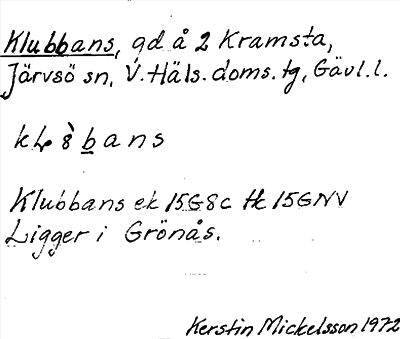 Klubbans, gd å 2 Kramsta,
Järvsö sn, V. Häls. doms. tg, Gävl. l.
bans
Klubbans ek 15G8c tk 15GNV
Ligger i Grönås.
Kerstin Mickelsson 1972